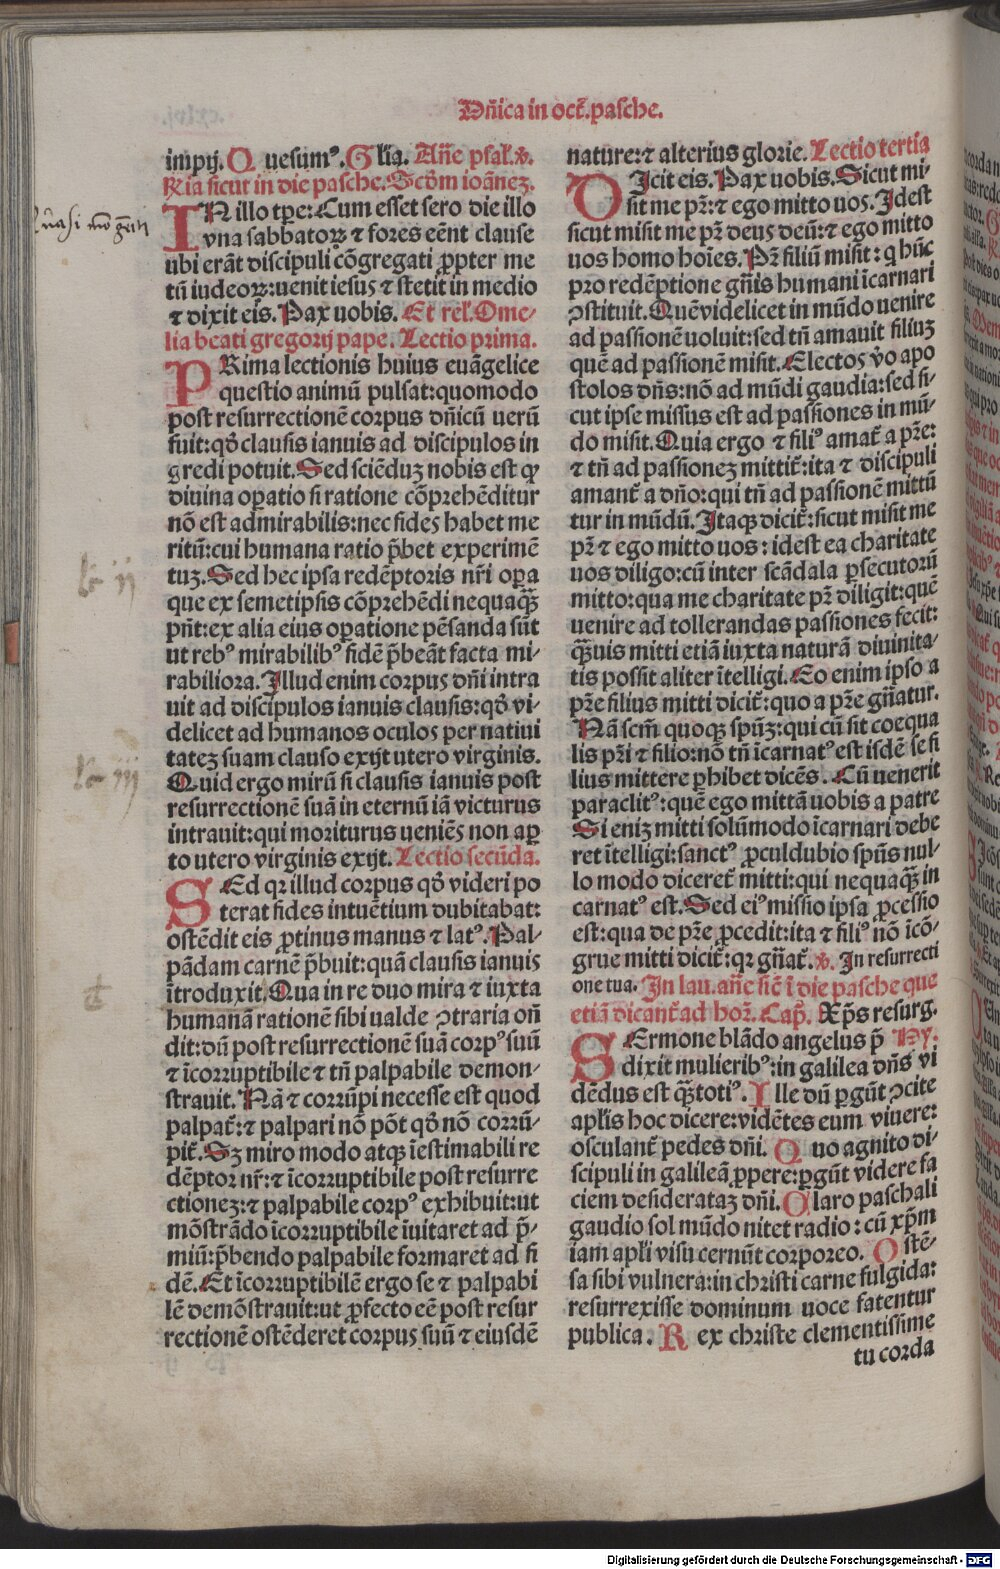 Dñica in oct̃. pasche.
impij. Q uesumꝰ. G lĩa. Añe psal̃. v̾.
Ria sicut in die pasche. Scõm ioãnez.
IN illo tꝑe: Cum esset sero die illo
vna sabbatoꝝ ⁊ fores eẽnt clause
ubi erãt discipuli cõgregati ꝓpter me
tũ iudeoꝝ: uenit iesus ⁊ stetit in medio
⁊ dixit eis. Pax uobis. Et rel̃. Ome-
lia beati gregorij pape. Lectio prima.
PRima lectionis huius euãgelice
questio animũ pulsat: quomodo
post resurrectionẽ corpus dñicũ uerũ
fuit: qđ clausis ianuis ad discipulos in
gredi potuit. Sed sciẽduz nobis est ꝙ
diuina oꝑatio si ratione cõprehẽditur
nõ est admirabilis: nec fides habet me
ritũ: cui humana ratio p̃bet experimẽ
tuz. Sed hec ipsa redẽptoris nr̃i oꝑa
que ex semetipsis cõprehẽdi nequaqᷓꝫ
pñt: ex alia eius oꝑatione pẽsanda sũt
ut rebꝰ mirabilibꝰ fidẽ p̃beãt facta mi-
rabiliora. Illud enim corpus dñi intra
uit ad discipulos ianuis clausis: qđ vi-
delicet ad humanos oculos per natiui
tatez suam clauso exijt utero virginis.
Quid ergo mirũ si clausis ianuis post
resurrectionẽ suã in eternũ iã victurus
intrauit: qui moriturus ueniẽs non aꝑ
to utero virginis exijt. Lectio secũda.
SEd qꝛ illud corpus qđ videri po
terat fides intuẽtium dubitabat:
ostẽdit eis ꝓtinus manus ⁊ latꝰ. Pal-
pãdam carnẽ p̃buit: quã clausis ianuis
ĩtroduxit. Qua in re duo mira ⁊ iuxta
humanã rationẽ sibi ualde ↄtraria oñ
dit: dũ post resurrectionẽ suã corpꝰ suũ
⁊ ĩcorruptibile ⁊ tñ palpabile demon-
strauit. Nã ⁊ corrũpi necesse est quod
palpat̃: ⁊ palpari nõ põt qđ nõ corrũ-
pit̃. Sꝫ miro modo atqꝫ ĩestimabili re
dẽptor nr̃: ⁊ ĩcorruptibile post resurre
ctionez: ⁊ palpabile corpꝰ exhibuit: ut
mõstrãdo ĩcorruptibile ĩuitaret ad p̃-
miũ: p̃bendo palpabile formaret ad fi
dẽ. Et ĩcorruptibilẽ ergo se ⁊ palpabi
lẽ demõstrauit: ut ꝓfecto eẽ post resur
rectionẽ ostẽderet corpus suũ ⁊ eiusdẽ
nature: ⁊ alterius glorie. Lectio tertia
DIcit eis. Pax uobis. Sicut mi-
sit me pr̃: ⁊ ego mitto uos. Idest
sicut misit me pr̃ deus deũ: ⁊ ego mitto
uos homo hoĩes. Pr̃ filiũ misit: q hũc
pro redẽptione gñis humani ĩcarnari
ↄstituit. Quẽ videlicet in mũdo uenire
ad passionẽ uoluit: sed tñ amauit filiuz
quẽ ad passionẽ misit. Electos v̾o apo
stolos dñs: nõ ad mũdi gaudia: sed si-
cut ipse missus est ad passiones in mũ-
do misit. Quia ergo ⁊ filiꝰ amat̃ a pr̃e:
⁊ tñ ad passionez mittit̃: ita ⁊ discipuli
amant̃ a dño: qui tñ ad passionẽ mittũ
tur in mũdũ. Itaqꝫ dicit̃: sicut misit me
pr̃ ⁊ ego mitto uos: idest ea charitate
uos diligo: cũ inter scãdala ꝑsecutorũ
mitto: qua me charitate pr̃ diligit: quẽ
uenire ad tollerandas passiones fecit:
qᷓꝫuis mitti etiã iuxta naturã diuinita-
tis possit aliter ĩtelligi. Eo enim ipso a
pr̃e filius mitti dicit̃: quo a pr̃e gñatur.
Nã scm̃ quoqꝫ spũꝫ: qui cũ sit coequa
lis pr̃i ⁊ filio: nõ tñ ĩcarnatꝰ est isdẽ se fi
lius mittere ꝑhibet dicẽs. Cũ uenerit
paraclitꝰ: quẽ ego mittã uobis a patre
Si eniz mitti solũmodo ĩcarnari debe
ret ĩtelligi: sanctꝰ ꝓculdubio spũs nul-
lo modo diceret̃ mitti: qui nequaqᷓꝫ in
carnatꝰ est. Sed eiꝰ missio ipsa ꝓcessio
est: qua de pr̃e ꝓcedit: ita ⁊ filiꝰ nõ ĩcõ-
grue mitti dicit̃: qꝛ gñat̃. v̾. In resurrecti
one tua. In lau. añe sic̃ ĩ die pasche que
etiã dicant̃ ad hoꝛ. Cap̃. Xp̃s resurg.
SErmone blãdo angelus p̃ Hy.
dixit mulieribꝰ: in galilea dñs vi
dẽdus est qᷓꝫtotiꝰ. I lle dũ ꝑgũt ↄcite
apl̃is hoc dicere: vidẽtes eum viuere:
osculant̃ pedes dñi. Q uo agnito di-
scipuli in galileã ꝓpere: ꝑgũt videre fa
ciem desiderataz dñi. C laro paschali
gaudio sol mũdo nitet radio: cũ xp̃m
iam apl̃i visu cernũt corporeo. O stẽ-
sa sibi vulnera: in christi carne fulgida:
resurrexisse dominum uoce fatentur
publica. R ex christe clementissime
tu corda
lc̃ ij
lc̃ iij
Digitalisierung gefördert durch die Deutsche Forschungsgemeinschaft - DFG